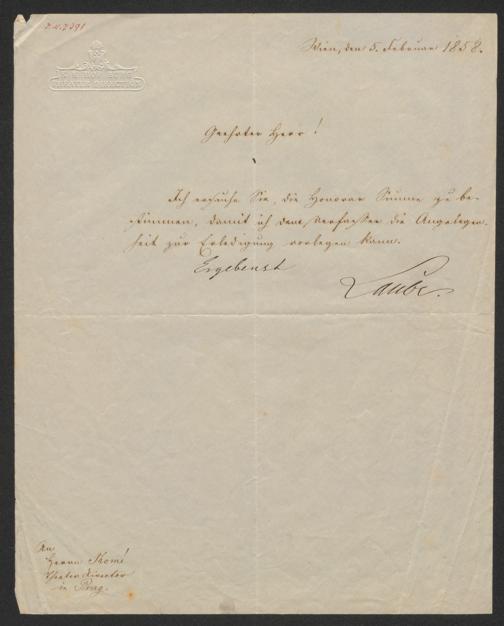 Wien, den 5. Februar 1858.
Geehrter Herr!
Ich ersuche Sie, die Honorar Summe zu be-
stimmen, damit ich dem Verfasser die Angelegen-
heit zur Erledigung vorlegen kann.
Ergebenst
Laube.
An
Herrn Thomé
Theaterdirector
in Prag.